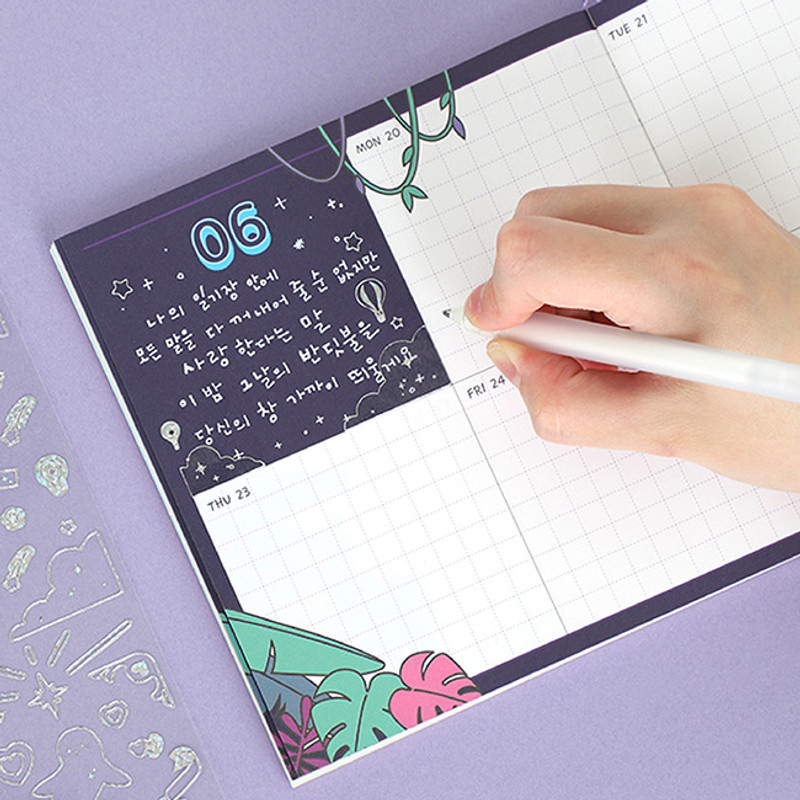 06
나의 일기장 안에
모든 말을 다 꺼내어 줄 순 없지만
사랑 한다는 말
이 밤 그날의 반딧불을
당신의 창 가까이 띄울게요
MON 20
TUE 21
THU 23
FRI 24